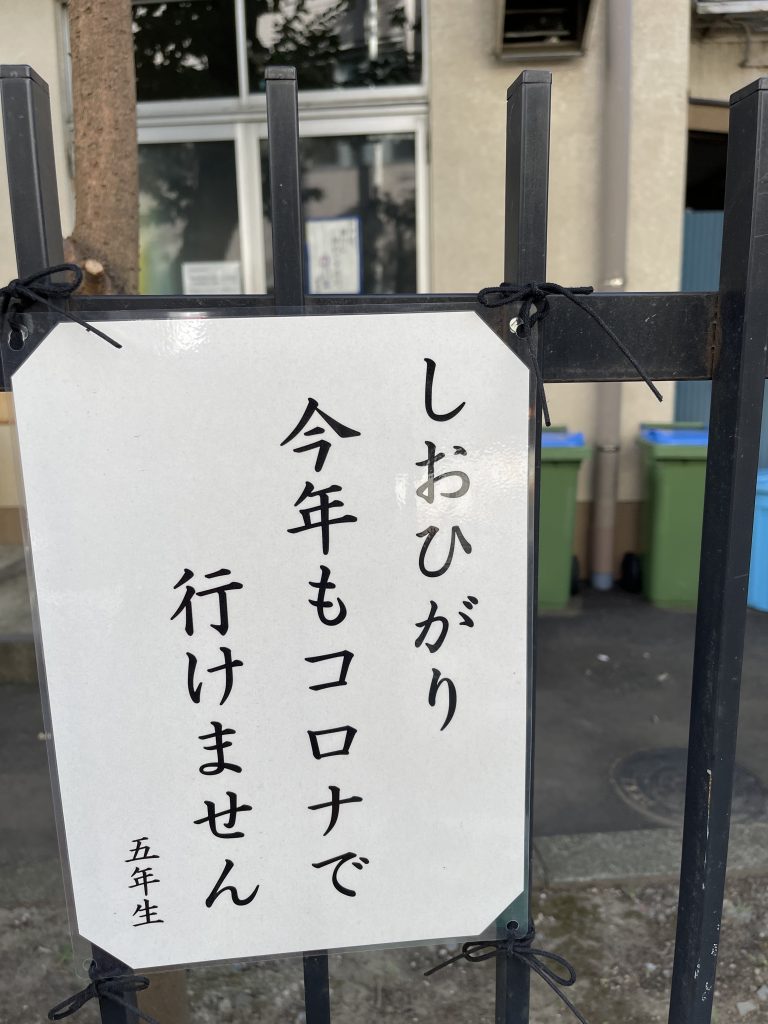 しおひがり
今年もコロナで
行けません
五年生